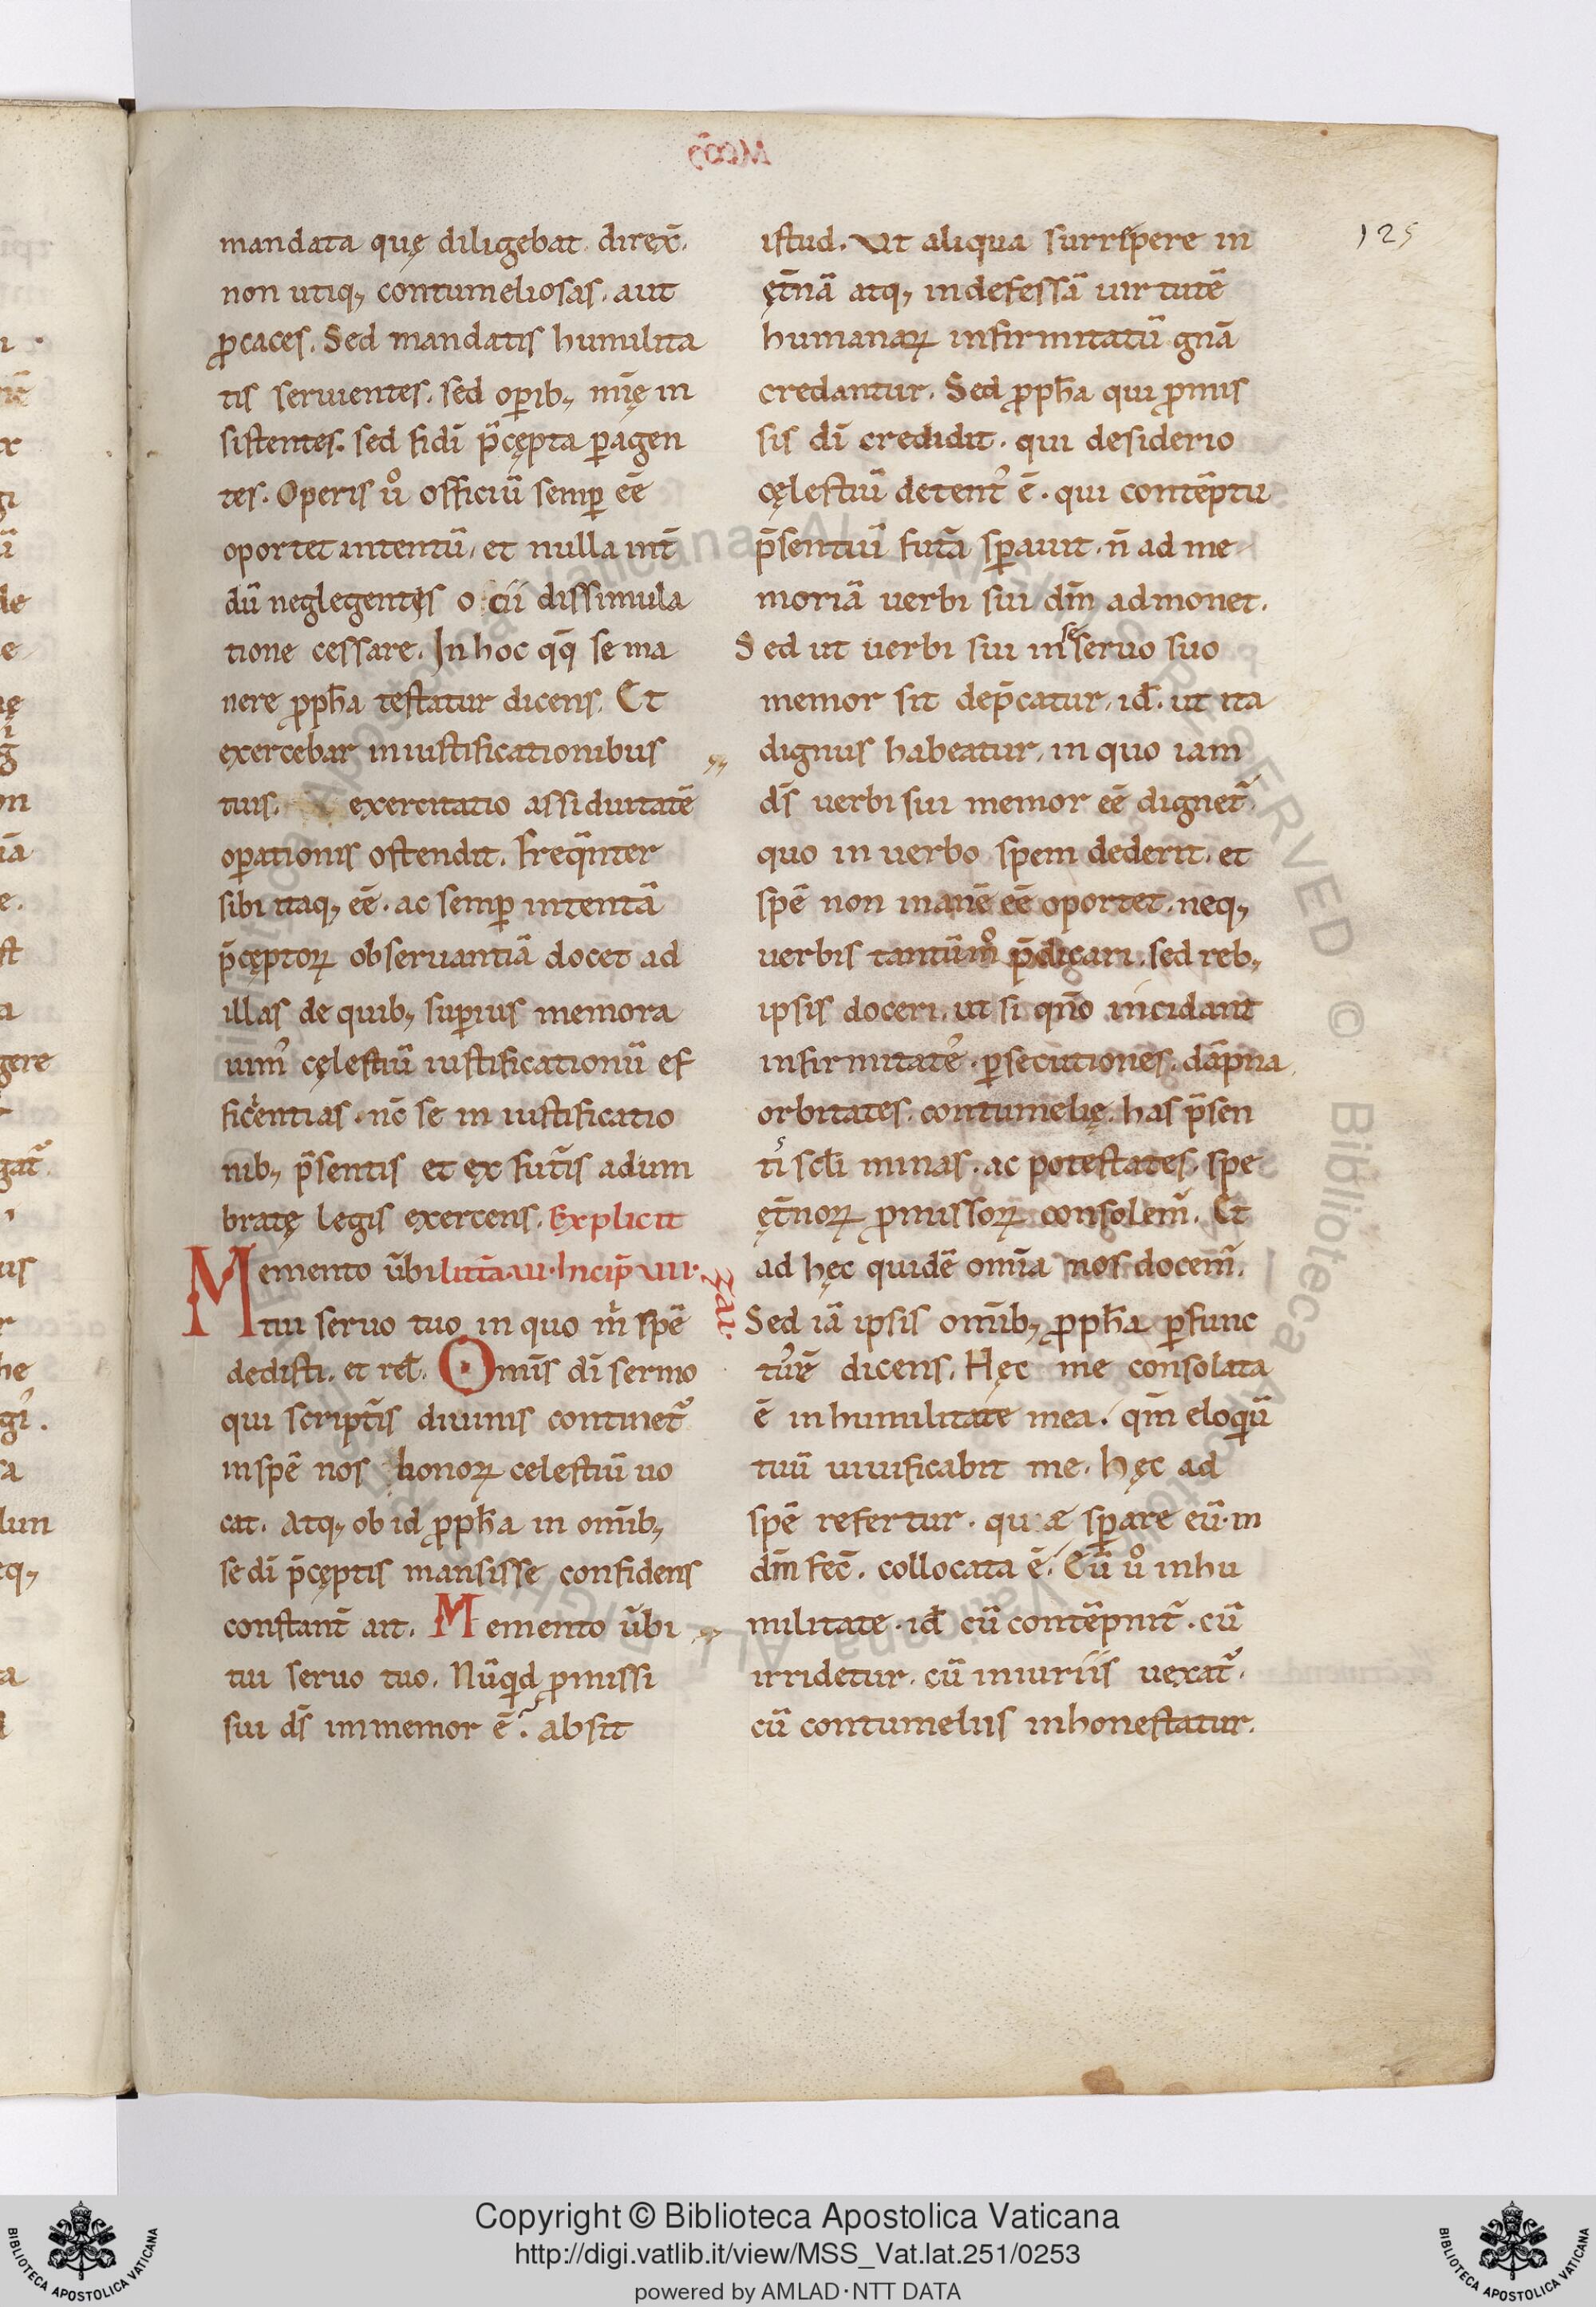 125
mandata quę diligebat direx̄.
non utiq; contumeliosas. aut
ꝓcaces. Sed mandatis humilita
tis seruientes. sed oꝑib; mīę in
sistentes. sed fidī p̄cępta ꝑagen
tes. Operis ůo officiū semꝑ eē
oportet intentū, et nulla int̄
dū neglegentis ocii dissimula
tione cessare. In hoc qq̄ se ma
nere ꝓph̄a testatur dicens. Et
exercebar in iustificationibus
tuis. exercitatio assiduitatē
oꝑationis ostendit. Freq̄nter
sibi itaq; eē. ac semꝑ intentā
p̄cęptoꝝ obseruantiā docet ad
illas de quib; suꝑius memora
uim᾽ cęlestiū iustificationū ef
ficientias. nc̄ se in iustificatio
nib; p̄sentis et ex fut̄is adum
bratę legis exercens. Explicit
Memento ūbi litt̄a. uii. Incip̄ uiii.
Zai.
tui seruo tuo in quo m̊ spē
dedisti. et rel̄. Omīs dī sermo
qui script̄is diuinis continet᾽
in spē nos bonoꝝ celestiū uo
cat. Atq; ob id ꝓph̄a in omīb;
se dī p̄cęptis mansisse confidens
constant̄ ait. Memento ūbi
tui seruo tuo. Nūqid ꝓmissi
sui ds̄ immemor ē? absit
istud. Ut aliqua surripere in
ęt̄nā atq; indefessā uirtutē
humanaꝝ infirmitatū gn̄a
credantur. Sed ꝓph̄a qui ꝓmis
sis dī credidit. qui desiderio
cęlestiū detent᾽ ē. qui contēptu
p̄sentiū fut̄a sꝑauit. n̄ ad me
moriā uerbi sui dm̄ admonet.
Sed ut uerbi sui in se seruo suo
memor sit dep̄catur, id̄. ut ita
dignus habeatur, in quo iam
ds̄ uerbi sui memor eē dignet᾽.
quo in uerbo spem dederit. et
spē non inanē eē oportet. neq;
uerbis tantūm̊ p̄dicari. sed reb;
ipsis doceri. ut si qn̄o incidant
infirmitate᾽. ꝑsecutiones. dāpna,
orbitates. contumelię. has p̄sen
tis scl̄i minas. ac potestates, spe
ęt̄noꝝ ꝓmissoꝝ consolem᾽. Et
ad hęc quidē omīa nos docem᾽.
Sed iā ipsis omīb; ꝓph̄a ꝑfunc
tur̄ē dicens. Hęc me consolata
ē in humilitate mea. qm̄ eloqiū
tuū uiuificabit me. hęc ad
spē refertur. quæ sꝑare eū in
dm̄ fec̄. collocata ē. Cū ůo in hu
militate. id̄ cū contēpnit᾽. cū
irridetur. cū iniuriis uexat᾽.
cū contumeliis inhonestatur.
Copyright © Biblioteca Apostolica Vaticana
http://digi.vatlib.it/view/MSS_Vat.lat.251/0253
powered by AMLAD·NTT DATA